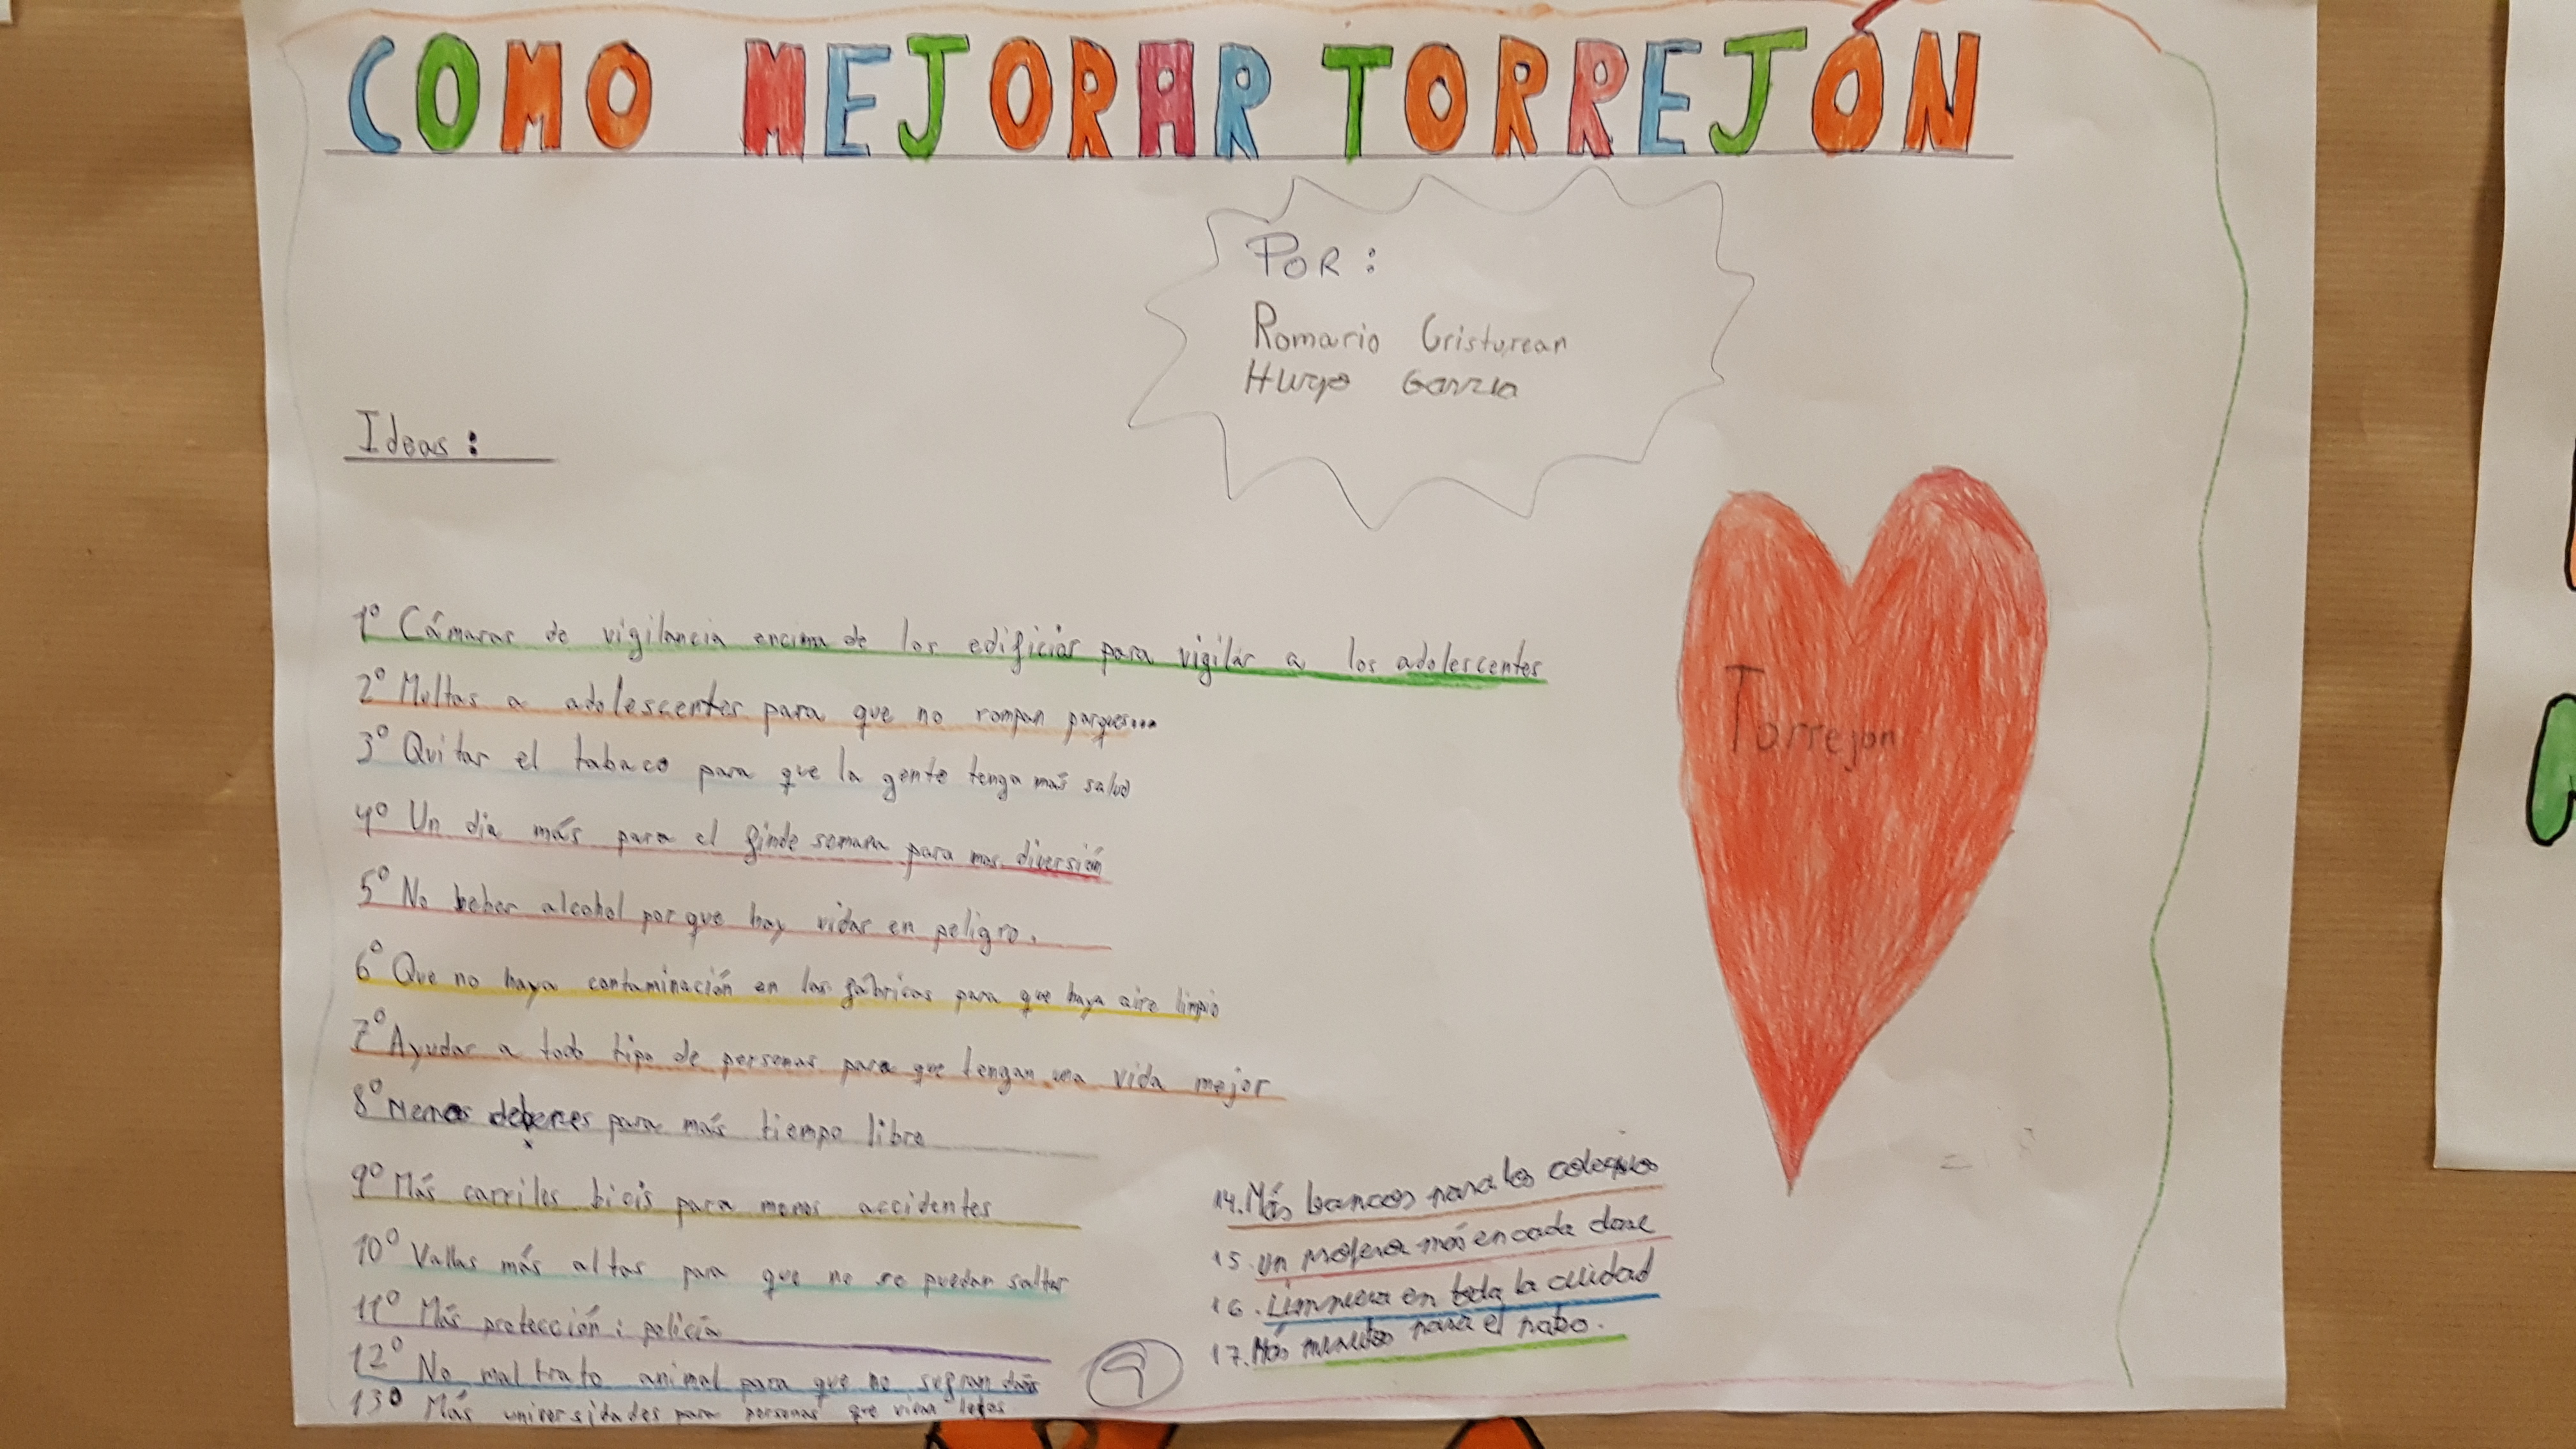 COMO MEJORAR TORREJÓN
POR:
Romario Cristurean
Hugo Garzia
Ideas:
1º Cámaras de vigilancia encima de los edificios para vigilar a los adolescentes
2º Multas a adolescentes para que no rompan parques...
3º Quitar el tabaco para que la gente tenga más salud
4º Un dia más para el finde semana para mas diversión
5º No beber alcohol porque hay vidas en peligro.
6º Que no haya contaminación en las fábricas para que haya aire limpio
7º Ayudar a todo tipo de personas para que tengan una vida mejor
8º Menos deberes para más tiempo libre
9º Más carriles bicis para menos accidentes
10º Vallas más altas para que no se puedan saltar
11º Más protección: policía
12º No maltrato animal para que no sufran
13º Más universidades para personas que viven lejos
14. Más bancos para los colegios
15. Un profesor más en cada clase
16. Limpieza en toda la ciudad
17. Más minutos para el patio.
Torrejon
9